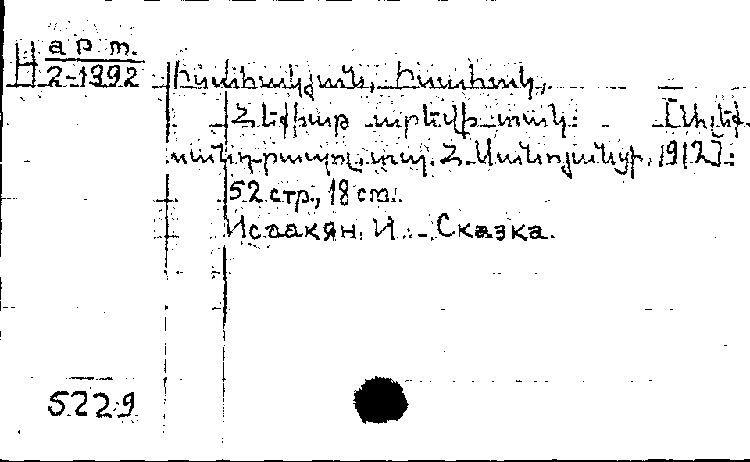 H арт.
2-1992
Իսահակյան, Իսահակ.
Հեքիաթ արեվի տակ: [Ալեք-
սանդրապոլ, տպ. Հ. Սանոյանցի, 1912]:
52 стр., 18 см.
Исаакян, И. - Сказка.
5229